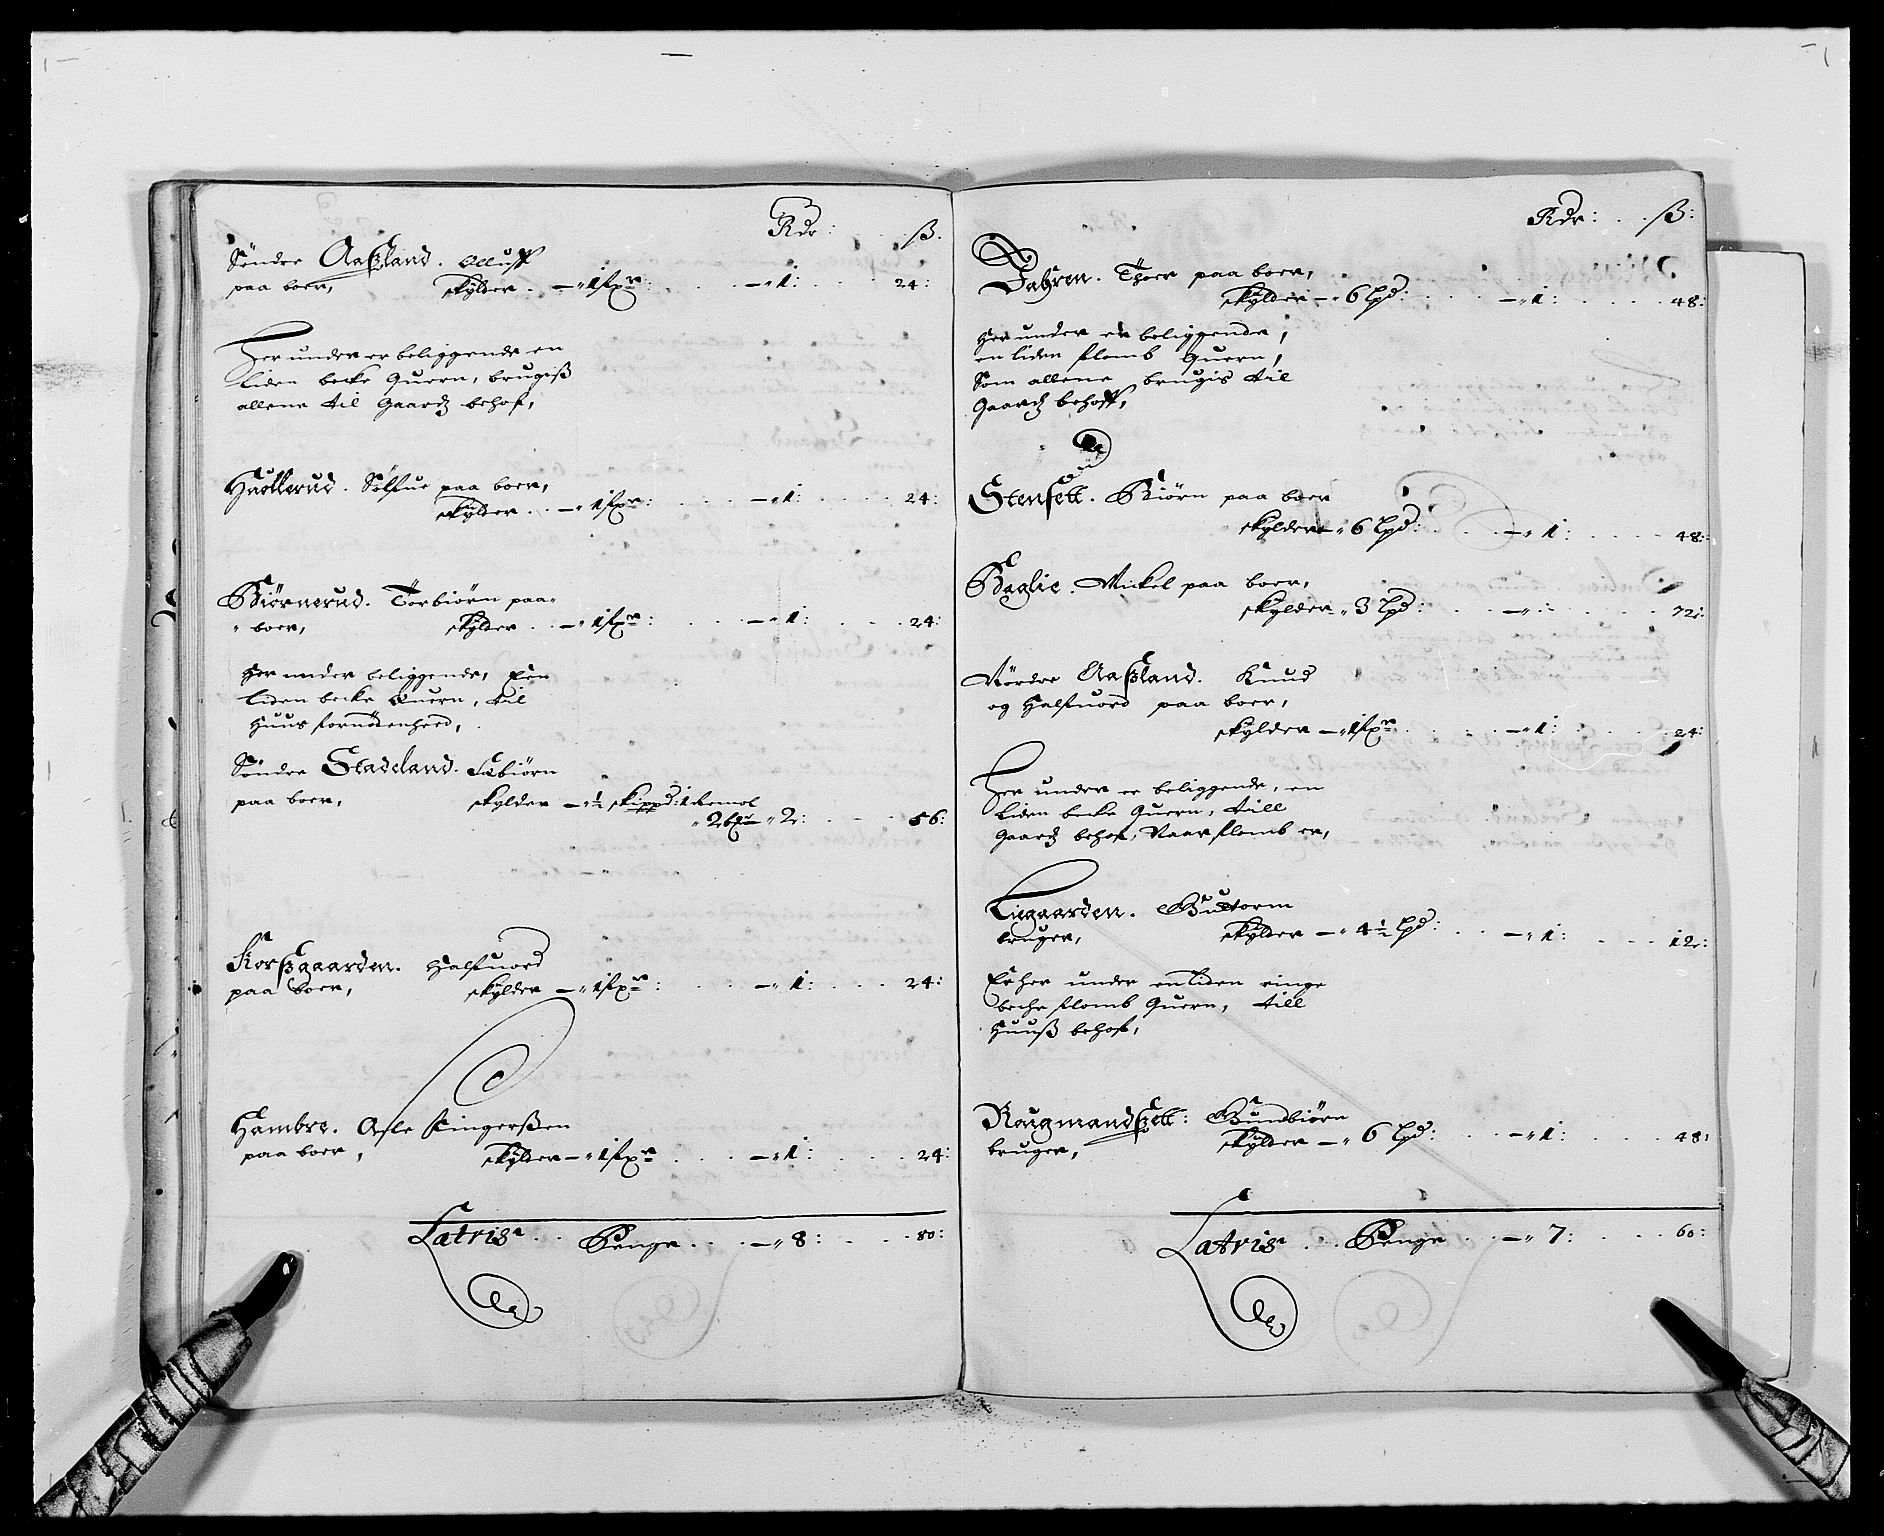 Rdr: ß.
Söndre Aaßland. Olluff
paa boer, skylder. – 1 fxr: – 1: 24:
Her under er beliggende en
liden becke Quern, brugiß
allene til Gaardz behof,
Haatterud. Sölfue paa boer,
skylder . . – 1 fxr: – 1: 24:
Biörnerud. Torbiörn paa
boer, skylder . . – 1 fxr: – 1: 24:
Her under beliggende, Een
liden becke Quern, til
Huus fornödenheed,
Söndre Stadeland. Esbiörn
paa boer, skylder – ½ skippd: 1 remol
2 bxr 2: 56:
Korßgaarden. Halfuord
paa boer, skylder – 1 fxr: – 1: 24:
Hambre. Asle Fingerßen
paa boer, skylder – 1 fxr – 1: 24:
Latris . . Penge . . . – 8: 80:
Rdr: ß:
Dahren. Thoer paa boer,
skylder – 6 lpd: – 1: 48:
Her under er beliggende,
en liden flomb Quern,
Som allene brugis til
Gaardz behoff,
Stensett. Biörn paa boer
skylder – 6 lpd: – 1: 48:
Baglie. Mickel paa boer,
skylder 3 lpd: – : 72:
Nördre Aaßland. Knud
og Halfuord paa boer,
skylder – 1 fxr – 1: 24:
Her under er beliggende, en
liden becke Quern, till
Gaardz behof, Naar flomb er,
Liegaarden. Guttorm
bruger, skylder – 4½ lpd: – 1: 12:
Er her under en liden ringe
beche flomb Quern, till
Huuß behof,
Rougmandßett: Gundbiörn
bruger, skylder – 6 lpd: – 1: 48:
Latris . . . Penge . . – 7: 60: